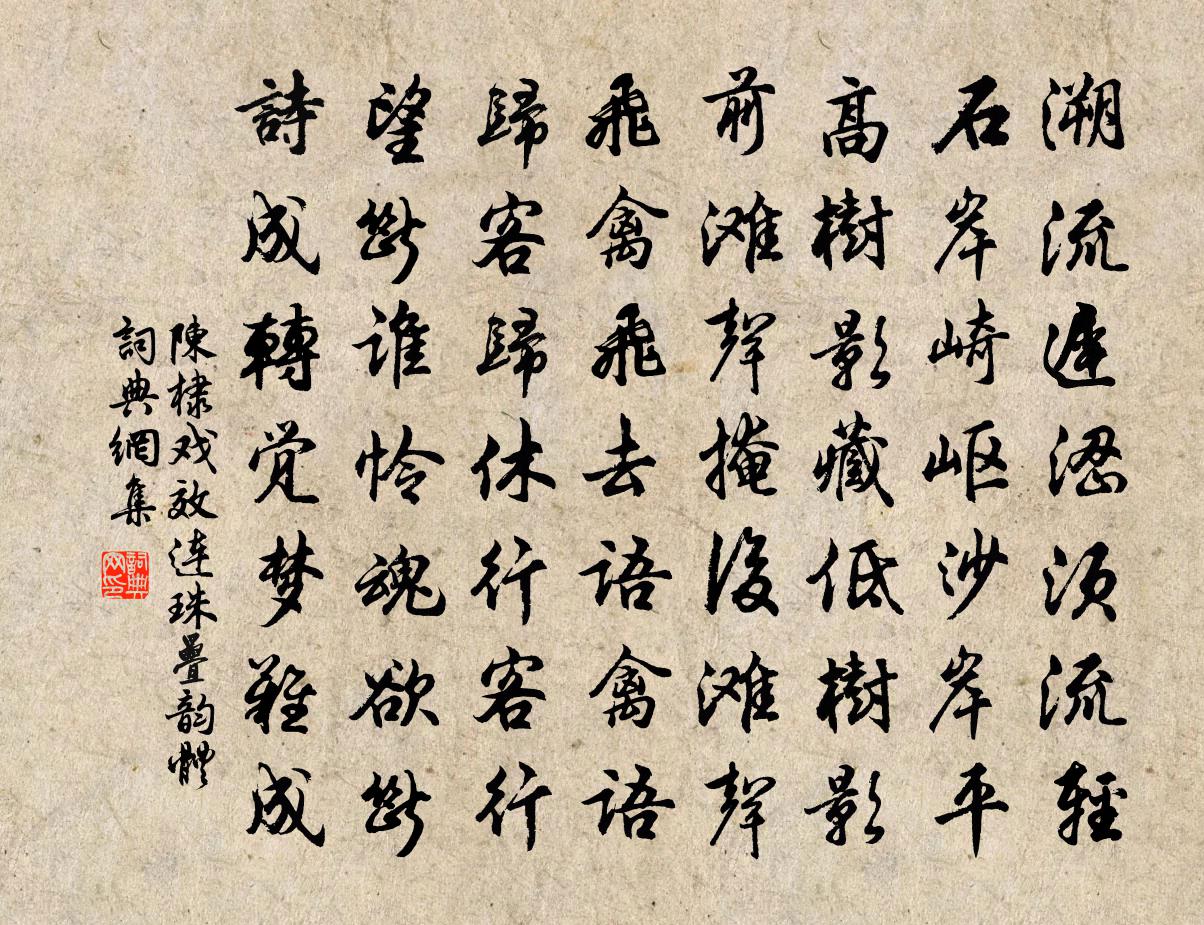 溯流遲涩順流輕
石岸崎岖沙岸平
高樹影藏低樹影
前滩聲掩後滩聲
飛禽飛去語禽語
歸客歸休行客行
望斷誰怜魂欲斷
詩成轉觉梦難成
陳棣戏效連珠疊韵體
詞典網集
詞典网印